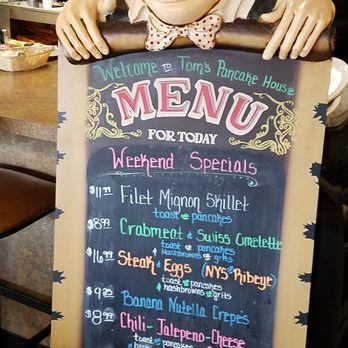 Welcome To Tom's Pancake House
MENU
FOR TODAY
Weekend Specials
$11.99 Filet Mignon Skillet
toast or pancakes
$8.99 Crabmeat & Swiss Omelette
toast or pancakes
hashbrowns or grits
$16.99 Steak & Eggs (NYS Ribeye)
toast or pancakes
hashbrowns or grits
$9.25 Banana Nutella Crepes
$8.99 Chili-Jalapeno-Cheese
toast or pancakes